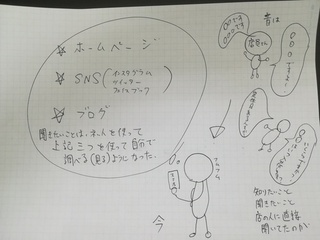 ☆ ホームページ
☆ SNS(インスタグラム
ツイッター
フェイスブック)
☆ ブログ
聞きたいことは、ネットを使って
上記三つを使って自分で
調べる(見る)ようになった。
昔は
〇〇〇です
〇〇〇です
〇〇〇ですよ!
今
知りたいこと
聞きたいこと
店の人に直接
聞いてたのが